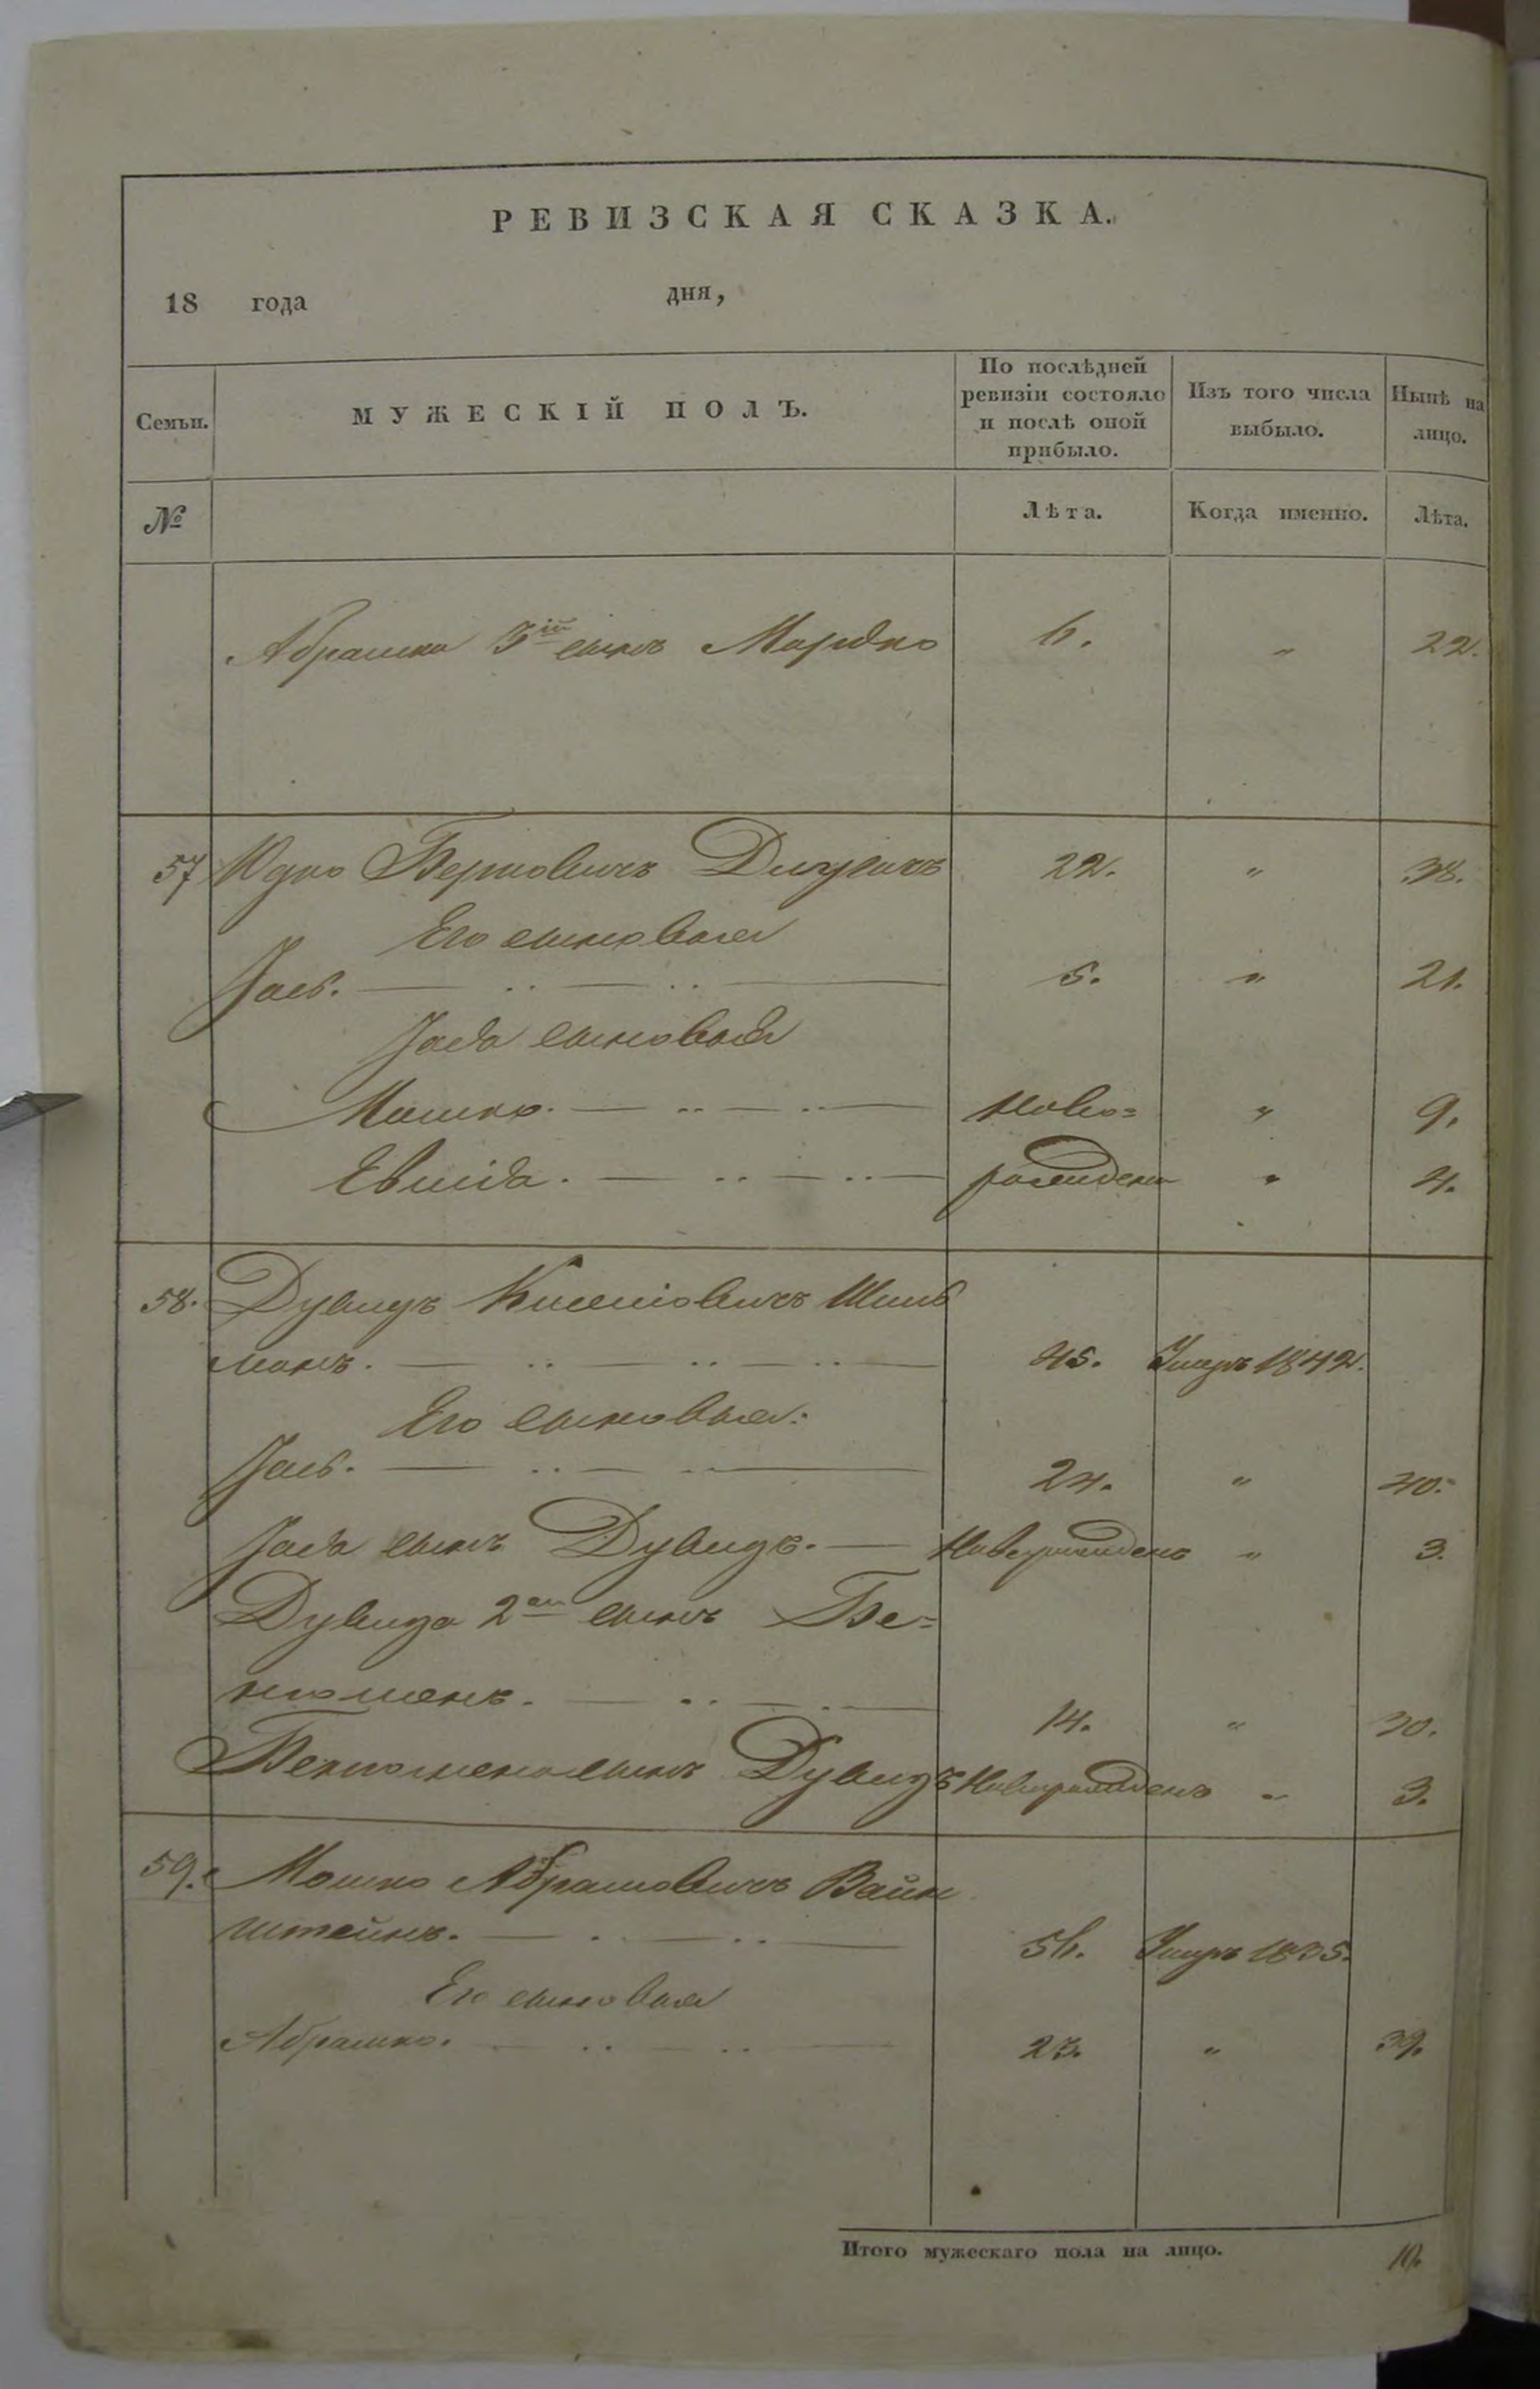 РЕВИЗСКАЯ СКАЗКА.
18 года дня,
Семьи. МУЖЕСКІЙ ПОЛЪ. По послѣдней ревизіи состояло и послѣ оной прибыло. Изъ того числа выбыло. Нынѣ на лицо.
№ Лѣта. Когда именно. Лѣта.
Абрашка 3ій сынъ Мордко 6. " 22.
57 Берковичъ 22. " 38.
Его сыновья
Іось. 5. " 21.
Іося сыновья
Мошко. ново= " 9.
рожденъ " 4.
58. Дувидъ
манъ. 45. Умеръ 1842.
Его сыновья:
Іось. 24. " 40.
Іося сынъ Дувидъ. Новорожденъ " 3.
Дувида 2ой сынъ Бе=
нюменъ. 14. " 30.
Бенюмена сынъ Дувидъ Новорожденъ " 3.
59. Мошко Абрамовичъ Вайн
штейнъ. 56. Умеръ 1835.
Его сыновья
Абрашко. 23. " 39.
Итого мужескаго пола на лицо. 10.